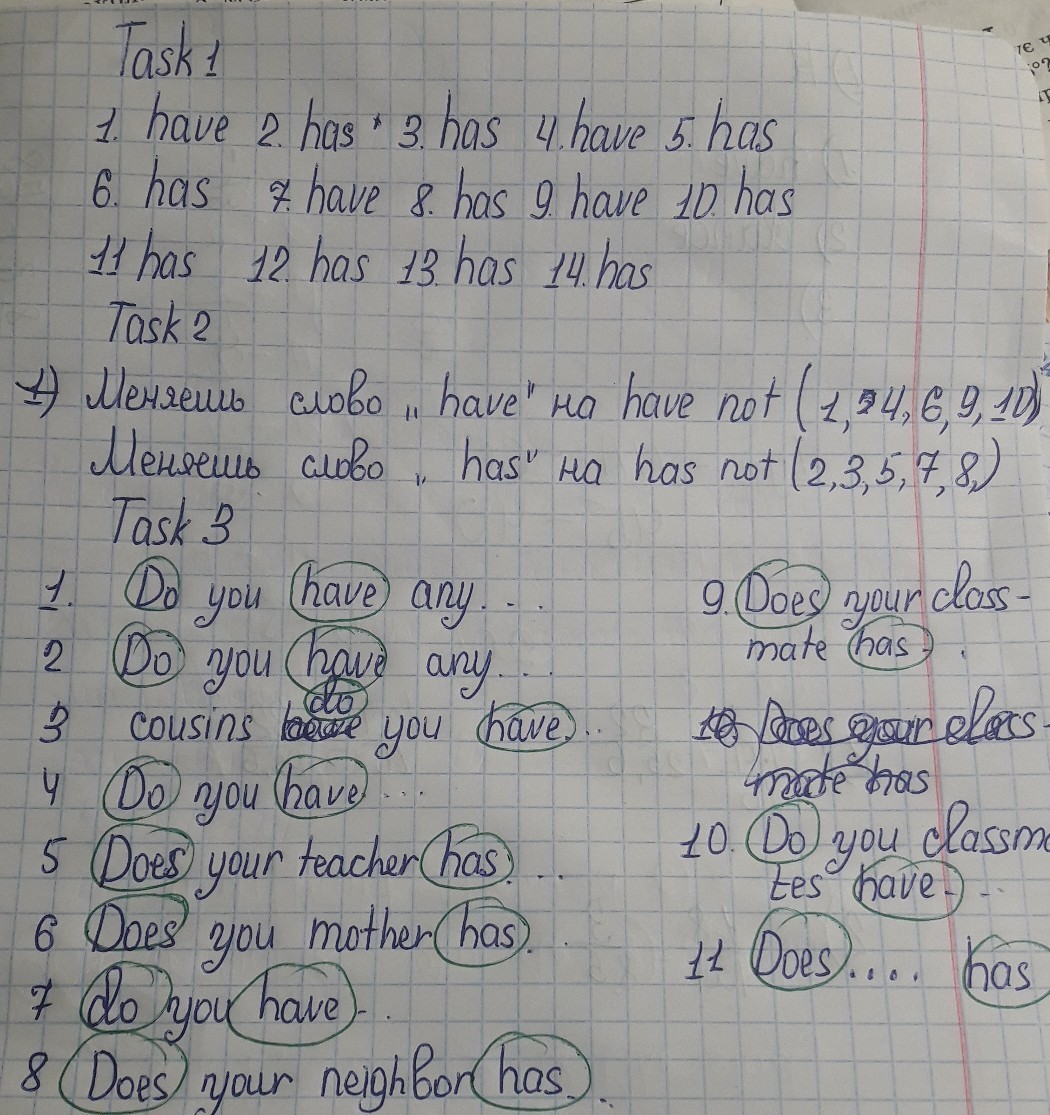 Task 1
1. have 2. has 3. has 4. have 5. has
6. has 7. have 8. has 9. have 10. has
11 has 12. has 13. has 14. has
Task 2
1) Меняешь слово „have" на have not (1, 4, 6, 9, 10)
Меняешь слово „has" на has not (2, 3, 5, 7, 8,)
Task 3
1. Do you have any...
2 Do you have any...
do
3 cousins have you have...
4 Do you have...
5 Does your teacher has...
6 Does you mother has...
7 do you have...
8 Does your neighbor has...
9. Does your class-
mate has..
10 Does your class-
mate has
10. Do you classma
tes have...
11 Does.... has